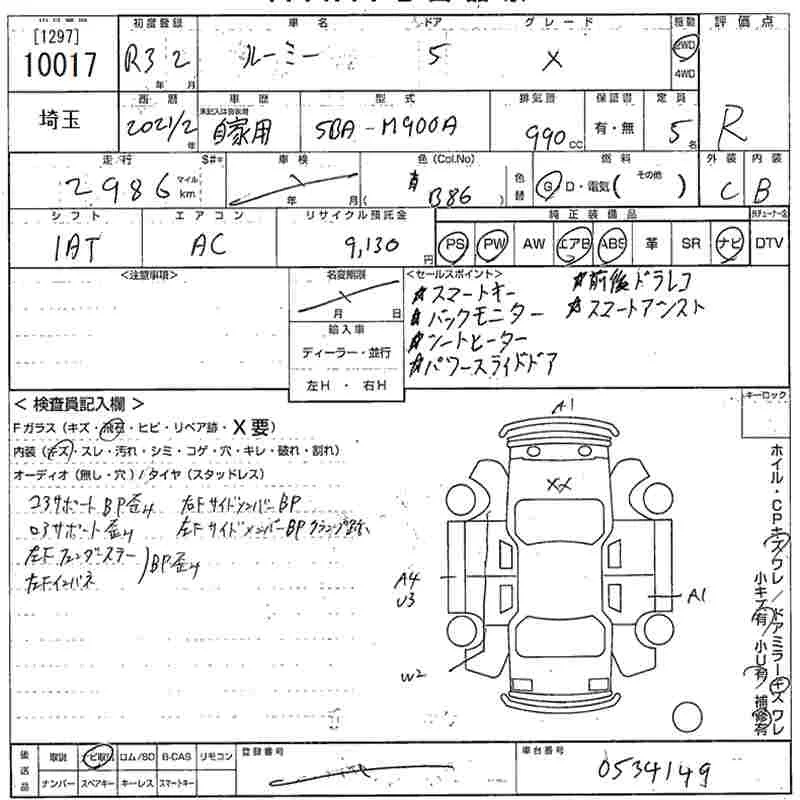 [1297]
10017
埼玉
初度登録 車名 ドア グレード 駆動 評価点
R3 2 ルーミー 5 X 2WD 4WD
年 月
西暦 車歴 型式 排気量 保証書 定員
2021/2 自家用 5BA-M900A 990 CC 有・無 5名 R
年
走行 S#* 車検 色(Col.No) 色替 燃料 外装 内装
2986 マイル km 年 月 B86 G D・電気( その他 ) C B
シフト エアコン リサイクル預託金 純正装備品
IAT AC 9,130円 PS PW AW エアB ABS 革 SR ナビ DTV
<注意事項> 名変期限 <セールスポイント>
月 日
☆スマートキー ☆前後ドラレコ
☆バックモニター ☆スマートアシスト
☆シートヒーター
☆パワースライドドア
輸入車
ディーラー・並行
左H・右H
<検査員記入欄> キーロック
Fガラス(キズ・飛石・ヒビ・リペア跡・X要)
内装(キズ・スレ・汚れ・シミ・コゲ・穴・キレ・破れ・割れ)
オーディオ(無し・穴)/タイヤ(スタッドレス)
コアサポート BP歪み 右Fサイドメンバー BP
ロアサポート 歪み 左FサイドメンバーBP
左Fフェンダーステー
左Fインパネ
BP歪み
A1
XX
A4
U3
A1
W2
ホイル・CPキズワレ/ドアミラーキズワレ
小キズ有/小U有/補修有
後送品 取説 ナビ取説 ロム/SD B-CAS リモコン 登録番号 車台番号
ナンバー スペアキー キーレス スマートキー 0534149